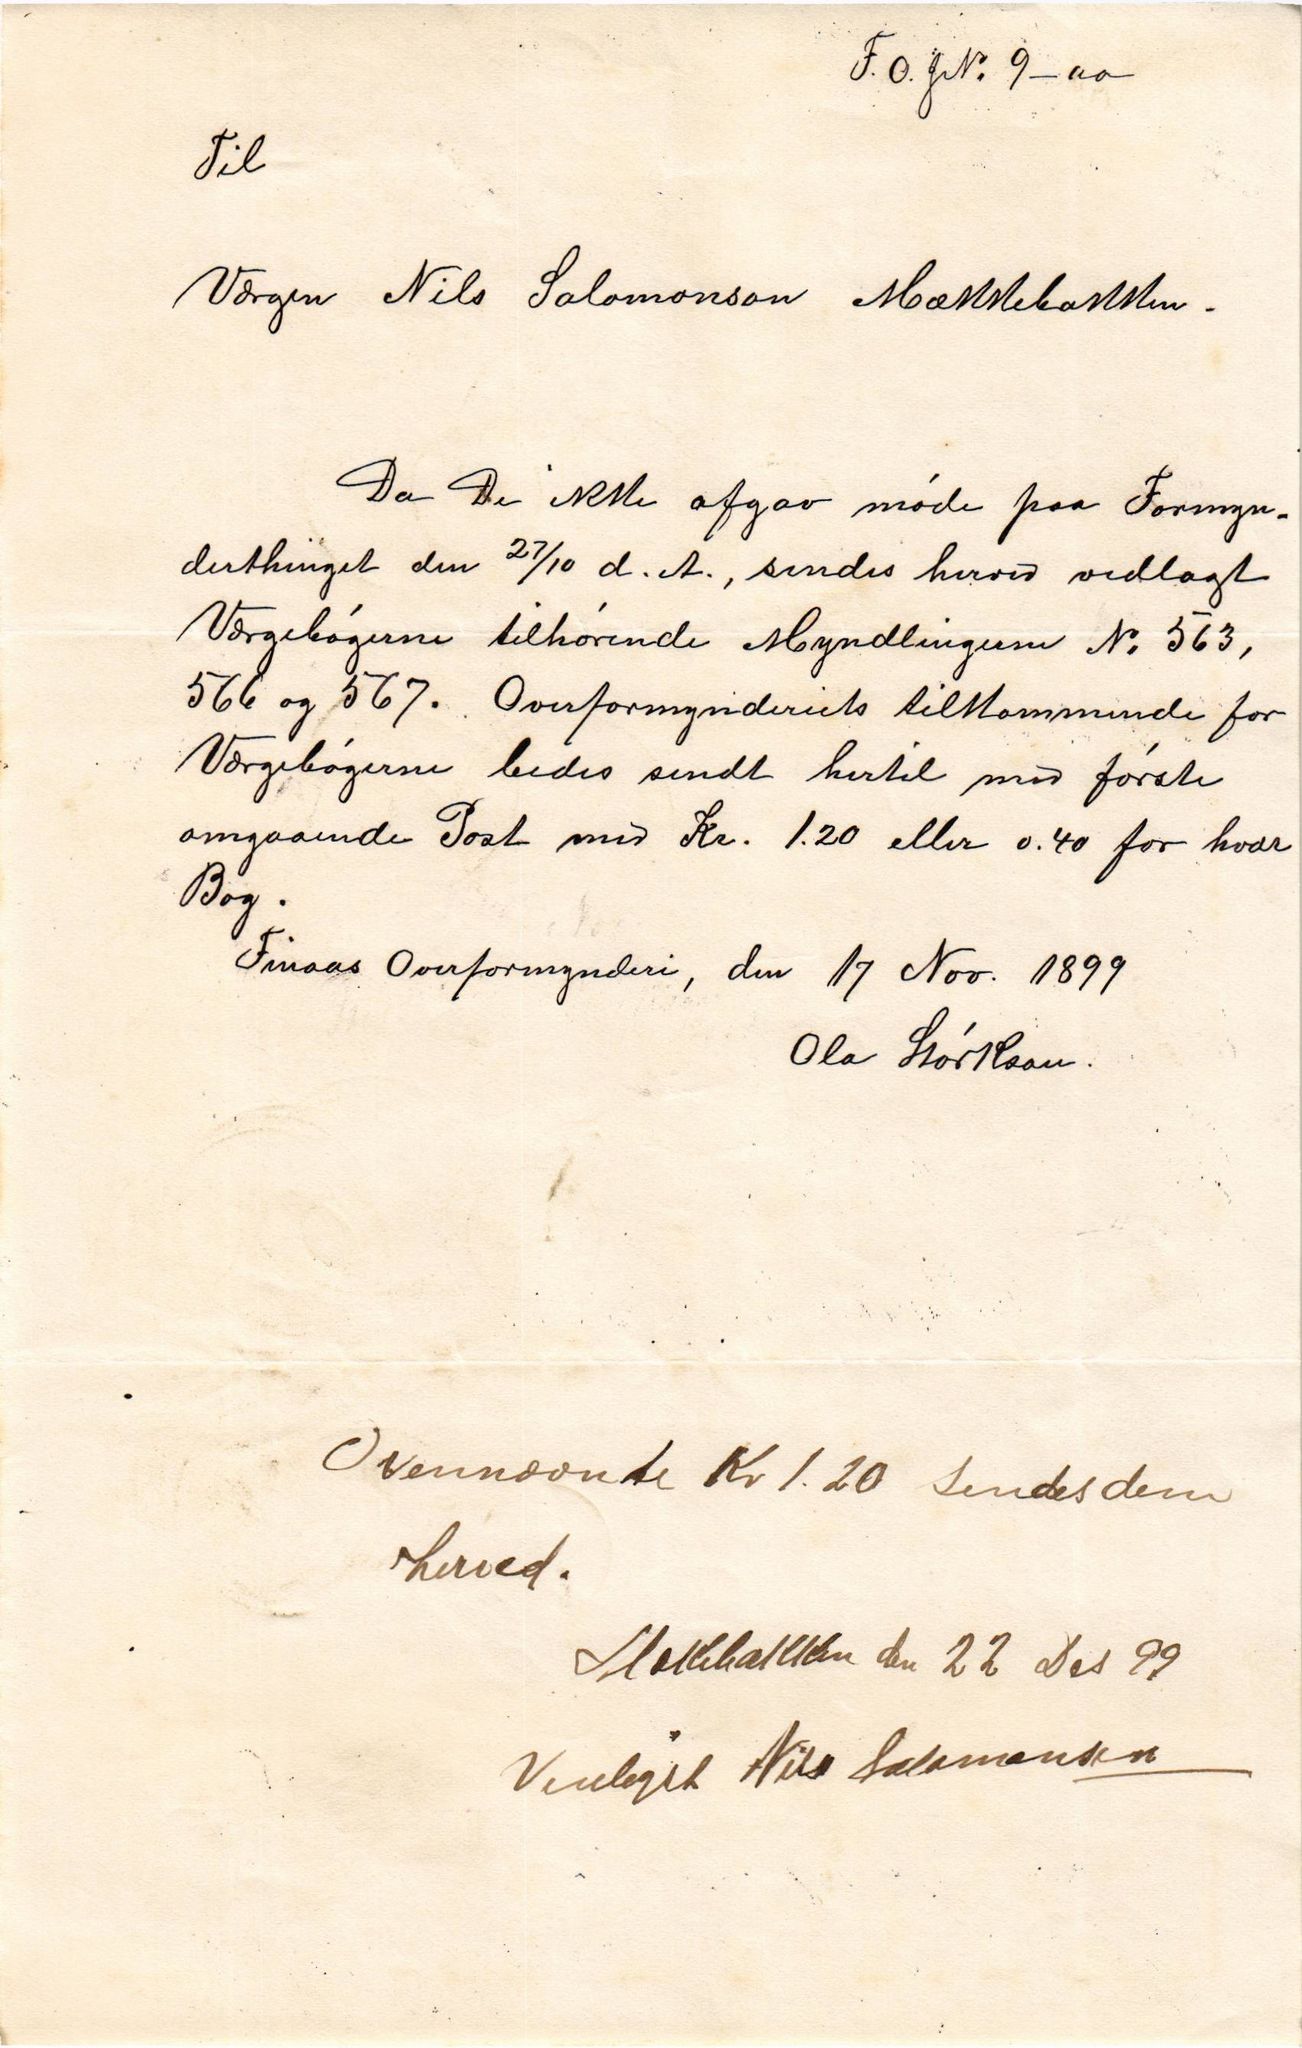 F. O. J. No. 9 - aa
Til
Værgen Nils Salomonson Mækkebakken.
Da De ikke afgav møde paa Formyn-
derthinget den 27/10 d. A., sendes herved vedlagt
Værgebøgerne tilhørende Myndlingerne No. 563,
566 og 567. Overformynderiets tilkommende for
Værgebøgerne bedes sendt hertil med første
omgaaende Post med Kr. 1.20 eller 0.40 for hver
Bog.
Finaas Overformynderi, den 17 Nov. 1899
Ola Størkson.
Ovennævnte Kr 1.20 sendes dem
herved.
den 22 Des 99
Venligst Nils Salamonsen